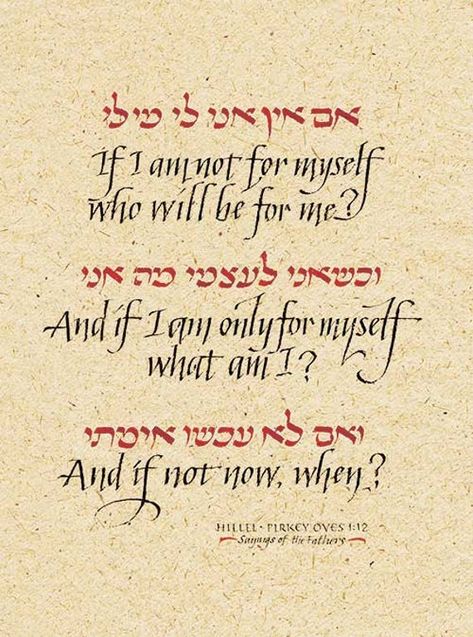 אם אין אני לי מי לי
If I am not for myself
who will be for me?
וכשאני לעצמי מה אני
And if I am only for myself
what am I?
ואם לא עכשו אימתי
And if not now, when?
HILLEL · PIRKEY OVES 1:12
Sayings of the Fathers